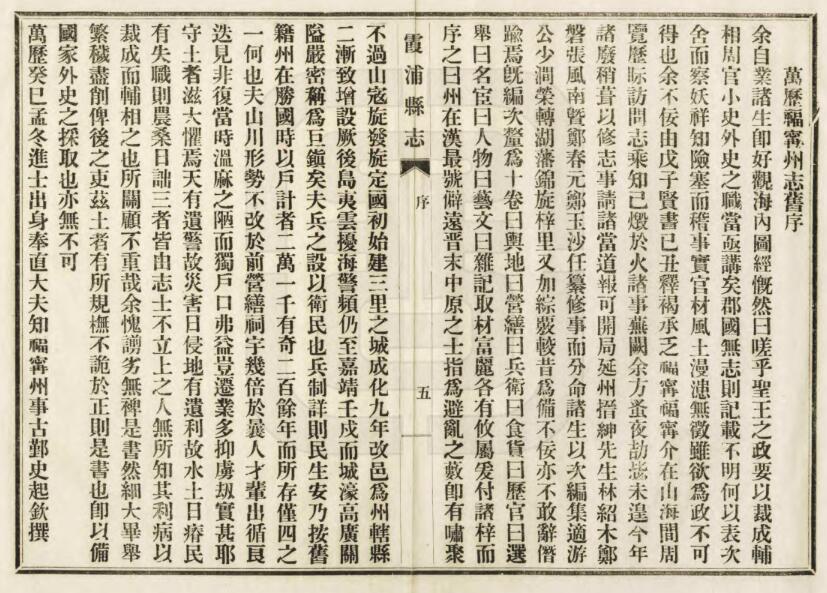 萬歷福甯州志舊序
余自業諸生卽好觀海內圖經慨然曰嗟乎聖王之政要以裁成輔
相周官小史外史之職當亟講矣郡國無志則記載不明何以表次
舍而察妖祥知險塞而稽事實官材風土漫漶無徵雖欲爲政不可
得也余不佞由戊子賢書已丑釋褐承乏福甯福甯介在山海間周
覽歷眎訪問志乘知已燬於火諸事蕪闕余方蚤夜劼毖未遑今年
諸廢稍葺以修志事請諸當道報可開局延州搢紳先生林紹木鄭
磐張風南曁鄭春元鄭玉沙任纂修事而分命諸生以次編集適游
公少澗榮轉湖藩錦旋梓里又加綜覈較昔爲備不佞亦不敢辭僭
踰焉旣編次釐爲十卷曰輿地曰營繕曰兵衛曰食貨曰歷官曰選
舉曰名宦曰人物曰藝文曰雜記取材富麗各有攸屬爰付諸梓而
序之曰州在漢最號僻遠晉末中原之士指爲避亂之藪卽有嘯聚
霞浦縣志
序
五
不過山寇旋發旋定國初始建三里之城成化九年改邑爲州轄縣
二漸致增設厥後島夷雲擾海警頻仍至嘉靖壬戌而城濠高廣關
隘嚴密稱爲巨鎭矣夫兵之設以衛民也兵制詳則民生安乃按舊
籍州在勝國時以戶計者二萬一千有奇二百餘年而所存僅四之
一何也夫山川形勢不改於前營繕祠宇幾倍於曩人才輩出循良
迭見非復當時溫麻之陋而獨戶口弗益豈遷業多抑虜刼實甚耶
守土者滋大懼焉天有遺警故災害日侵地有遺利故水土日瘠民
有失職則農桑日詘三者皆由志士不立上之人無所知其利病以
裁成而輔相之也所關顧不重哉余愧謭劣無裨是書然細大畢舉
繁穢盡削俾後之吏茲土者有所規橅不詭於正則是書也卽以備
國家外史之採取也亦無不可
萬歷癸巳孟冬進士出身奉直大夫知福甯州事古鄞史起欽撰